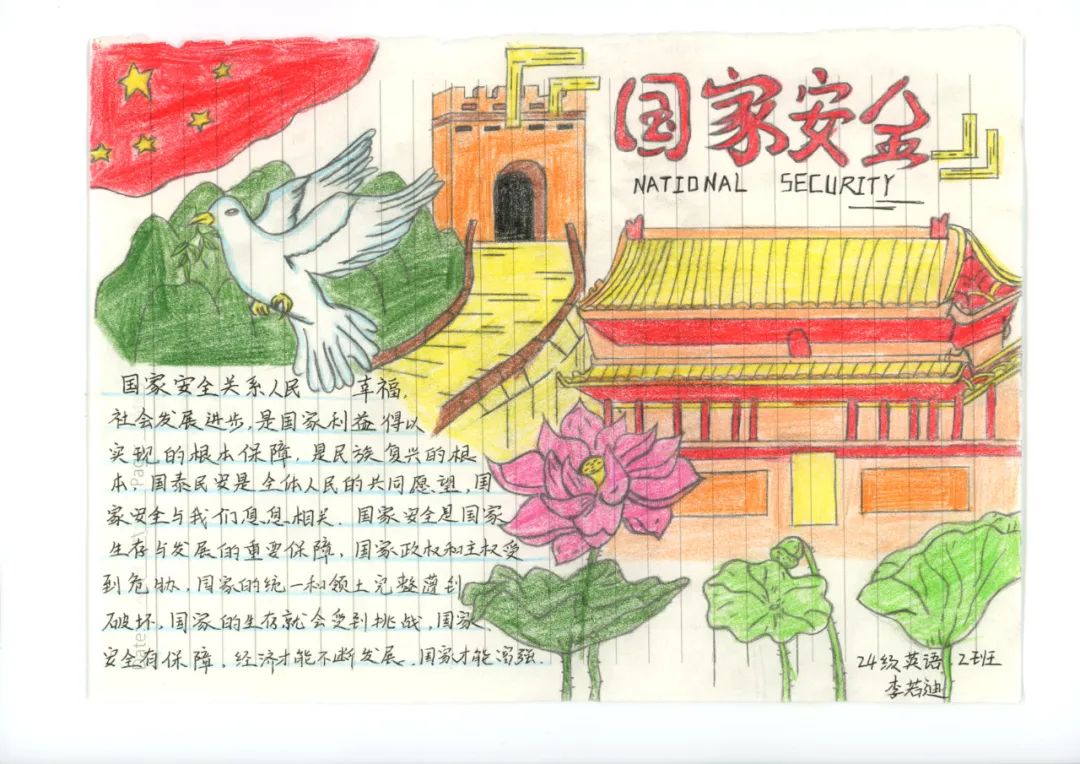 国家安全
NATIONAL SECURITY
国家安全关系人民 幸福,
社会发展进步,是国家利益得以
实现的根本保障,是民族复兴的根
本,国泰民安是全体人民的共同愿望,国
家安全与我们息息相关.国家安全是国家
生存与发展的重要保障,国家政权和主权受
到危胁,国家的统一和领土完整遭到
破坏,国家的生存就会受到挑战,国家
安全有保障,经济才能不断发展.国家才能富强.
24级英语2班
李若迪